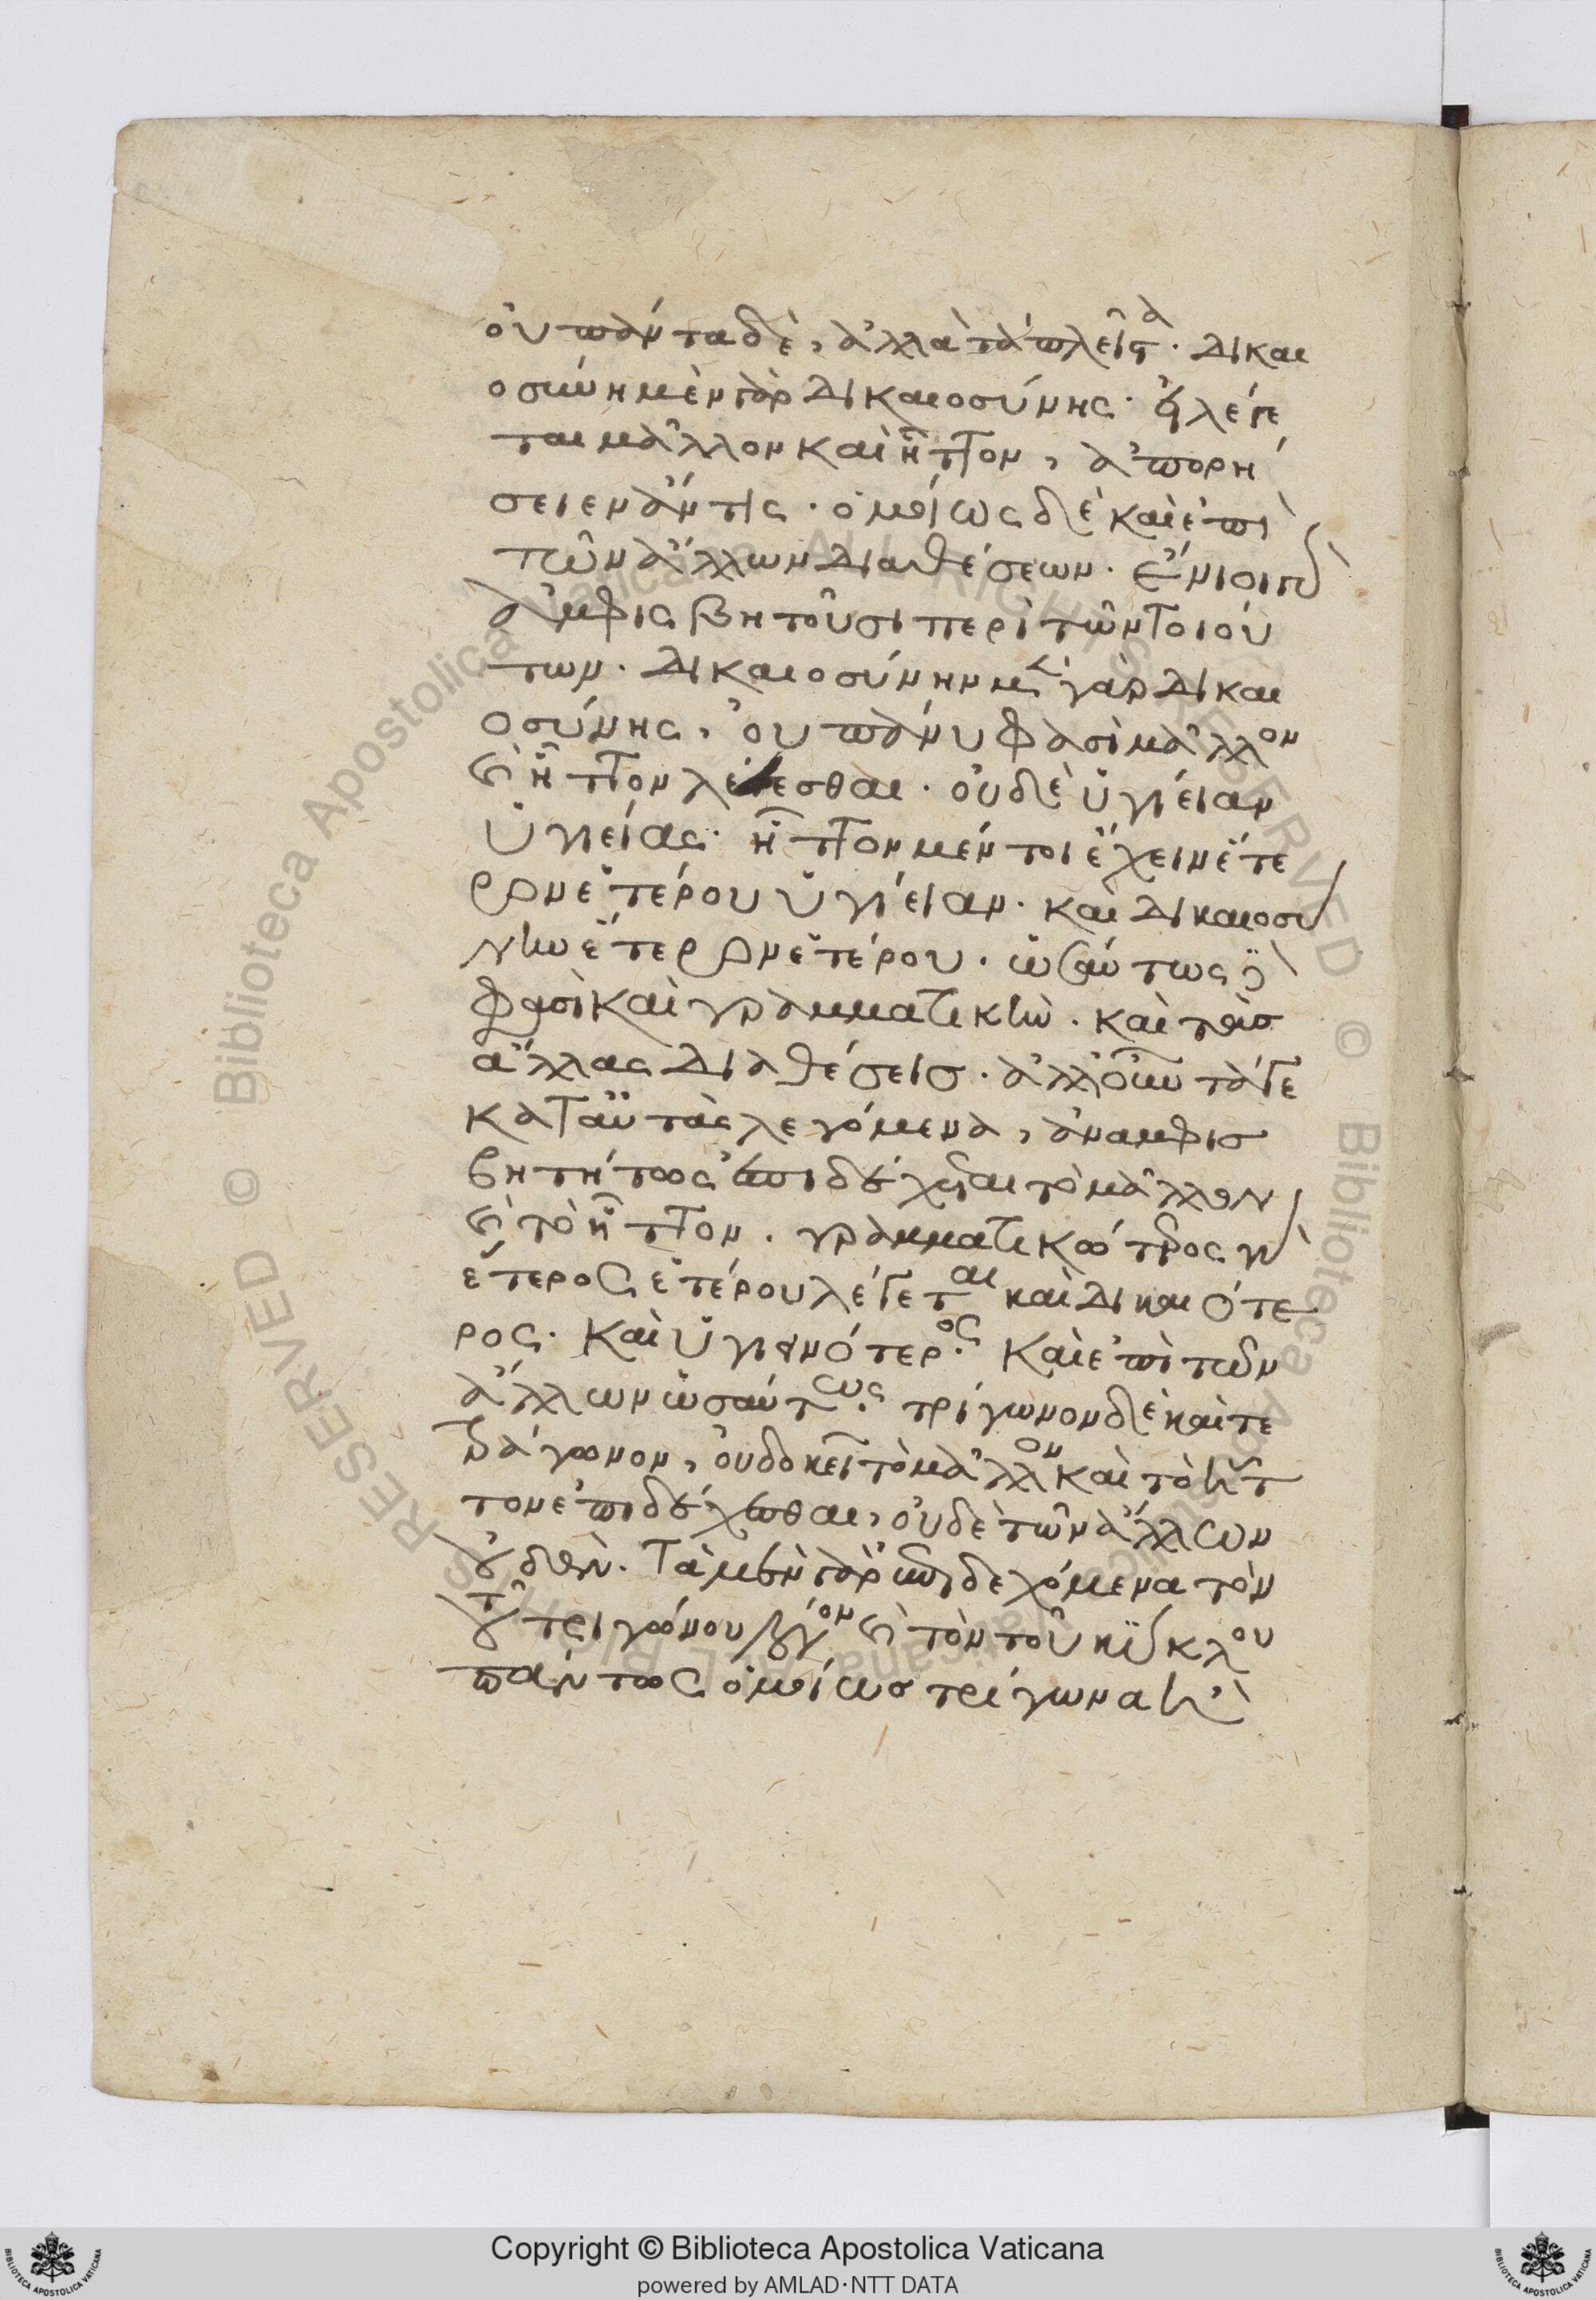 οὐ πάντα δὲ, ἀλλὰ τὰ πλεῖστα. δικαι
οσύνη μὲν γὰρ δικαιοσύνης. εἰ λέγε
ται μᾶλλον καὶ ἧττον, ἀπορή
σειεν ἄν τις. ὁμοίως δὲ καὶ ἐπὶ
τῶν ἄλλων διαθέσεων. ἔνιοι γὰρ
ἀμφισβητοῦσι περὶ τῶν τοιού
των. δικαιοσύνην μὲν γὰρ δικαι
οσύνης, οὐ πάνυ φασὶ μᾶλλον
καὶ ἧττον λέγεσθαι. οὐδὲ ὑγίειαν
ὑγιείας. ἧττον μέντοι ἔχειν ἕτε
ρον ἑτέρου ὑγίειαν. καὶ δικαιοσύ
νην ἕτερον ἑτέρου. ὡσαύτως δὲ
φασὶ καὶ γραμματικὴν. καὶ τὰς
ἄλλας διαθέσεις. ἀλλ' οὖν τά γε
κατ' αὐτὰς λεγόμενα, ἀναμφισ
βητήτως ἐπιδέχεται τὸ μᾶλλον
καὶ τὸ ἧττον. γραμματικώτερος γὰρ
ἕτερος ἑτέρου λέγεται καὶ δικαιότε
ρος. καὶ ὑγιεινότερος. καὶ ἐπὶ τῶν
ἄλλων ὡσαύτως. τρίγωνον δὲ καὶ τε
τράγωνον, οὐ δοκεῖ τὸ μᾶλλον καὶ τὸ ἧτ
τον ἐπιδέχεσθαι, οὐδὲ τῶν ἄλλων
οὐδέν. τὰ μὲν γὰρ ἐπιδεχόμενα τὸν
τοῦ τριγώνου λόγον καὶ τὸν τοῦ κύκλου
πάντως ὁμοίως τρίγωνα ἢ
Copyright © Biblioteca Apostolica Vaticana
powered by AMLAD·NTT DATA